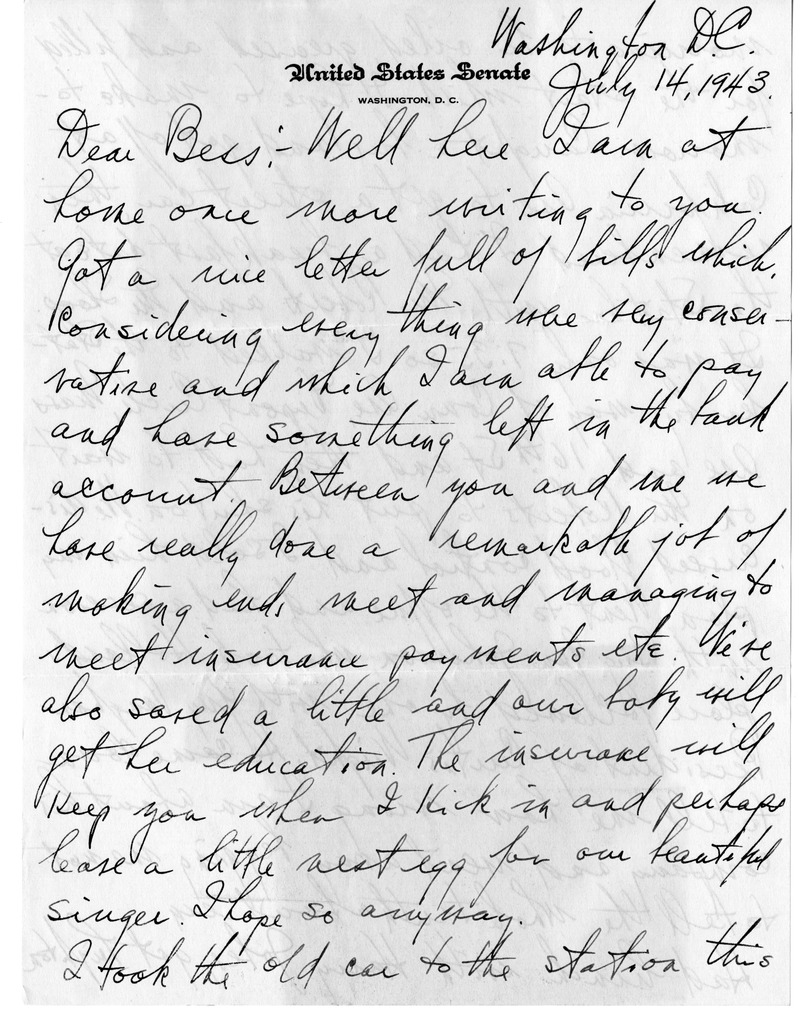 Washington D.C.
United States Senate
WASHINGTON, D. C.
July 14, 1943.
Dear Bess:- Well here I am at
home once more writing to you.
Got a nice letter full of bills which,
considering every thing were very conser-
vative and which I am able to pay
and have something left in the bank
account. Between you and me we
have really done a remarkable job of
making ends meet and managing to
meet insurance payments etc. We've
also saved a little and our baby will
get her education. The insurance will
keep you when I kick in and perhaps
leave a little nest egg for our beautiful
singer. I hope so anyway.
I took the old car to the station this